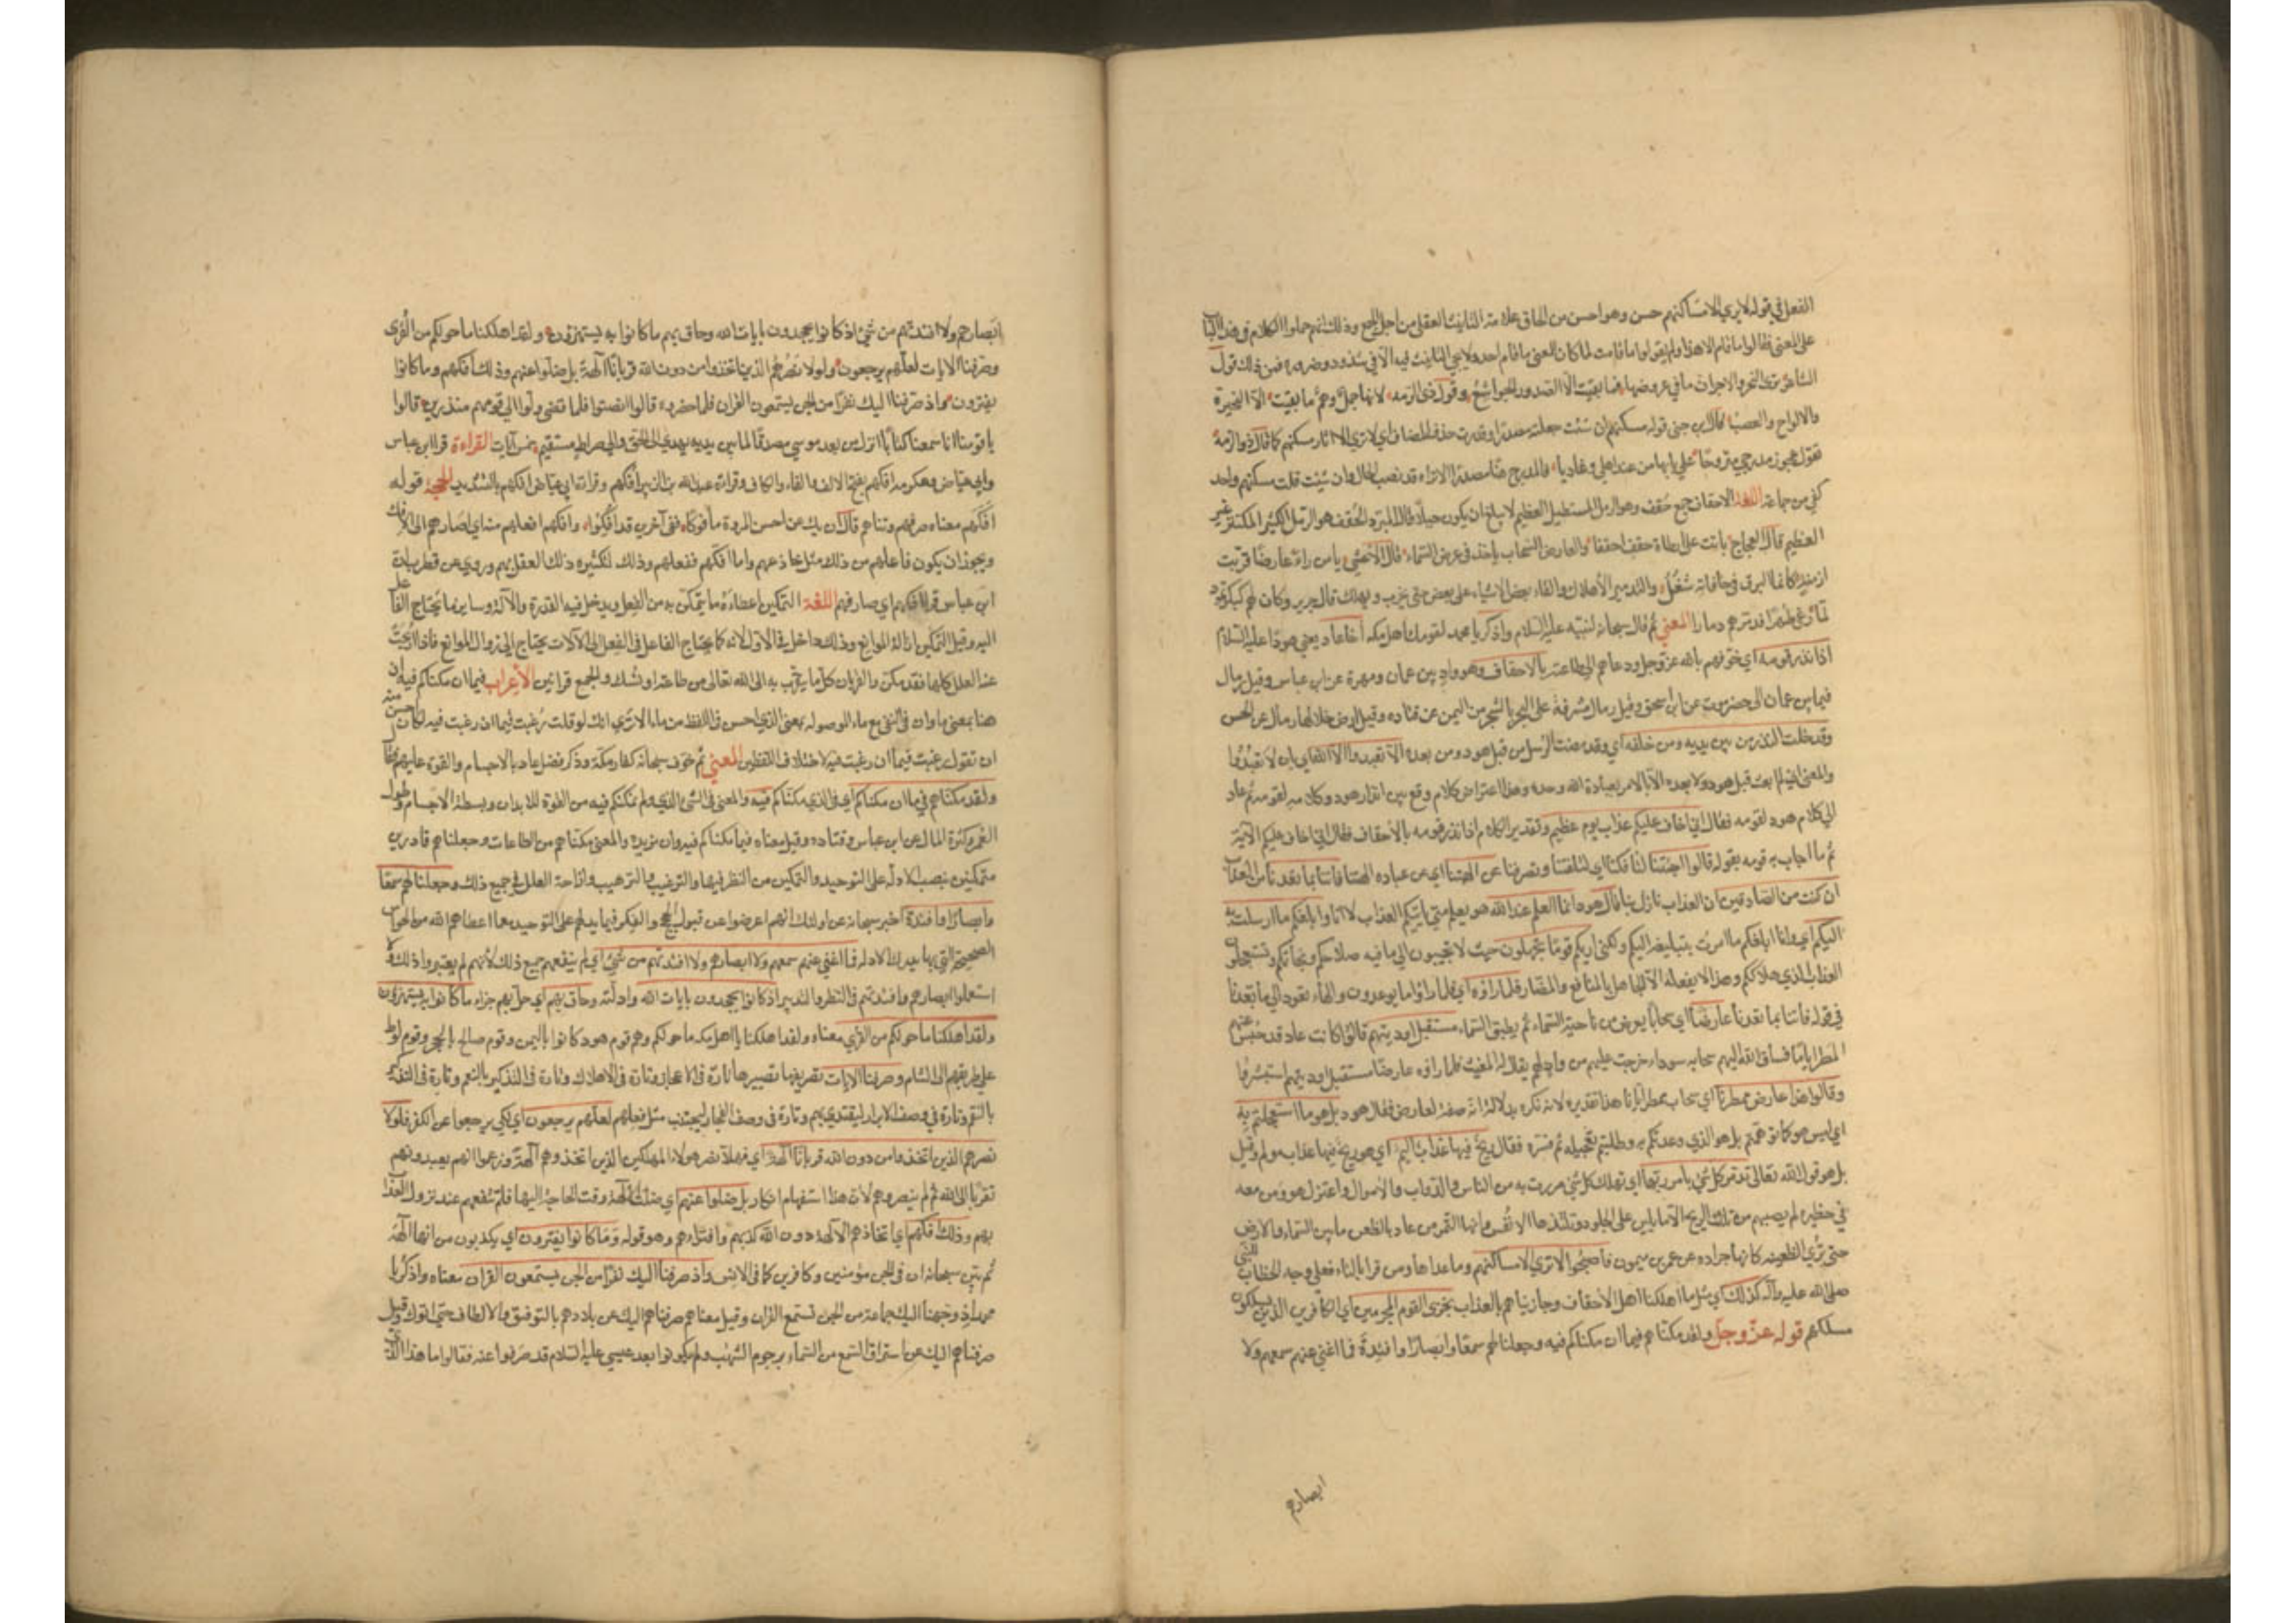 الفعل في قوله لا يري الا مساكنهم حسن وهو احسن من الحاق علامة التانيث الفعل من اجل الجمع وذلك انهم حملوا الكلام في هذا الباب
علي المعني فقالوا ما قام الا هند ولم يقولوا ما قامت لما كان المعني ما قام احد ولا يجي التانيث فيه الا في شذوذ وضرورة فمن ذلك قول
الشاعر بري النحز والاجراز ما في غروضها فما بقيت الا الصدور الجراشع وقول ذي الرمة لانها جمل وهم ما بقيت الا النحيزة
والالواح والعصب قال ابن جني قوله مسكنهم ان شئت جعلته مصدرا وقدرت حذف المضاف اي لا تري الا اثار مسكنهم كما قال ذو الرمة
تقول عجوز مدرجي متروحا علي بابها من عند اهلي وغاديا فالمدرج هنا مصدر الا تراه قد نصب الحال وان شئت قلت مسكنهم واحد
كفي من جماعة اللغة الاحقاف جمع حقف وهو الرمل المستطيل العظيم لا يبلغ ان يكون جبلا قال المبرد الحقف هو الرمل الكثير المكتنز غير
العظيم قال العجاج باتت علي ارطاة حقف احقفا والعارض السحاب ياخذ في عرض السماء قال الاعشي يا من راي عارضا قد بت
ارمقه كانما البرق في حافاته شعل والتدمير الاهلاك والقاء بعض الاشياء علي بعض حتي يخرب ويهلك قال جرير وكان لهم كبكر ثمود
لما رغي ظهرا فدمرهم دمارا المعني ثم قال سبحانه لنبيه عليه السلام واذكر يا محمد لقومك اهل مكة اخا عاد يعني هودا عليه السلام
اذ انذر قومه اي خوفهم بالله عز وجل ودعاهم الي طاعته بالاحقاف وهو واد بين عمان ومهرة عن ابن عباس وقيل رمال
فيما بين عمان الي حضرموت عن ابن اسحق وقيل رمال مشرفة علي البحر بالشحر من اليمن عن قتادة وقيل ارض خلالها رمال عن الحسن
وقد خلت النذر من بين يديه ومن خلفه اي وقد مضت الرسل من قبل هود ومن بعده الا تعبدوا الا الله اي بان لا تعبدوا
والمعني اني لم ابعث قبل هود ولا بعده الا بالامر بعبادة الله وحده وهذا اعتراض كلام وقع بين انذار هود وكلامه لقومه ثم عاد
الي كلام هود لقومه فقال اني اخاف عليكم عذاب يوم عظيم وتقدير الكلام اذ انذر قومه بالاحقاف فقال اني اخاف عليكم الاية
ثم ما اجاب به قومه بقوله قالوا اجئتنا لتافكنا اي لتلفتنا وتصرفنا عن الهتنا اي عن عبادة الهتنا فاتنا بما تعدنا من العذاب
ان كنت من الصادقين ان العذاب نازل بنا قال هود انما العلم عند الله هو يعلم متي ياتيكم العذاب لا انا وابلغكم ما ارسلت به
اليكم اي وانا ابلغكم ما امرت بتبليغه اليكم ولكني اريكم قوما تجهلون حيث لا تجيبون الي ما فيه صلاحكم ونجاتكم وتستعجلون
العذاب الذي فيه هلاككم وهذا لا يفعله الا الجاهل بالمنافع والمضار فلما راوه اي فلما راوا ما يوعدون والهاء تعود الي ما تعدنا
في قوله فاتنا بما تعدنا عارضا اي سحابا يعرض من ناحية السماء ثم يطبق السماء مستقبل اوديتهم قالوا كانت عاد قد حبس عنهم
المطر اياما فساق الله اليهم سحابة سوداء خرجت عليهم من واد لهم يقال له المغيث فلما راوه عارضا مستقبل اوديتهم استبشروا
وقالوا هذا عارض ممطرنا اي سحاب ممطر ايانا هذا تقديره لانه نكرة بدلالة انه صفة لعارض فقال هود بل هو ما استعجلتم به
اي ليس هو كما توهمتم بل هو الذي وعدتكم به وطلبتم تعجيله ثم فسره فقال ريح فيها عذاب اليم اي هو ريح فيها عذاب مولم وقيل
بل هو قول الله تعالي تدمر كل شئ بامر ربها اي تهلك كل شئ مرت به من الناس والدواب والاموال واعتزل هود ومن معه
في حظيرة لم يصبهم من تلك الريح الا ما يلين علي الجلود وتلتذه الانفس وانها لتمر من عاد بالظعن ما بين السماء والارض
حتي تري الظعينة كانها جرادة عن عمرو بن ميمون فاصبحوا لا تري الا مساكنهم وما عداها ومن قرا بالتاء فعلي وجه الخطاب للنبي
صلي الله عليه وآله كذلك اي مثل ما اهلكنا اهل الاحقاف وجازيناهم بالعذاب نجزي القوم المجرمين اي الكافرين الذين يسلكون
مسلكهم قوله عز وجل ولقد مكناهم فيما ان مكناكم فيه وجعلنا لهم سمعا وابصارا وافئدة فما اغني عنهم سمعهم ولا
ابصارهم
ابصارهم ولا افئدتهم من شئ اذ كانوا يجحدون بايات الله وحاق بهم ما كانوا به يستهزؤن ولقد اهلكنا ما حولكم من القري
وصرفنا الايات لعلهم يرجعون فلولا نصرهم الذين اتخذوا من دون الله قربانا آلهة بل ضلوا عنهم وذلك افكهم وما كانوا
يفترون واذ صرفنا اليك نفرا من الجن يستمعون القران فلما حضروه قالوا انصتوا فلما قضي ولوا الي قومهم منذرين قالوا
يا قومنا انا سمعنا كتابا انزل من بعد موسي مصدقا لما بين يديه يهدي الي الحق والي صراط مستقيم خمس آيات القراءة قرا ابن عباس
وابي عياض وعكرمة افكهم بفتح الالف والفاء والكاف وقراءة عبد الله بن الزبير آفكهم وقراءة ابي عياض افكهم بالتشديد الحجة قوله
افكهم معناه صرفهم وثناهم قال ان يك عن احسن المروة مافوكا ففي آخرين قد افكوا وافكهم افعلهم منه اي اصارهم الي الافك
ويجوز ان يكون فاعلهم من ذلك مثل خادعهم واما افكهم ففعلهم وذلك لتكثيره ذلك الفعل بهم وروي عن قطرب ان
ابن عباس قرا آفكهم اي صارفهم اللغة التمكين اعطاء ما يتمكن به من الفعل ويدخل فيه القدرة والآلة وساير ما يحتاج الفاعل
اليه وقيل التمكين ازالة الموانع وذلك داخل في الاول لانه كما يحتاج الفاعل في الفعل الي الآلات يحتاج الي زوال الموانع فاذا ازيحت
عنه العلل كلها فقد مكن والقربان كل ما يتقرب به الي الله تعالي من طاعة او نسك والجمع قرابين الاعراب فيما ان مكناكم فيه ان
هنا بمعني ما وان في النفي مع ما الموصولة بمعني الذي احسن في اللفظ من ما الا تري انك لو قلت رغبت فيما ان رغبت فيه لكان احسن منه
ان تقول رغبت فيما ما رغبت فيه لاختلاف اللفظين المعني ثم خوف سبحانه كفار مكة وذكر فضل عاد بالاجسام والقوة عليهم فقال
ولقد مكناهم فيما ان مكناكم اي في الذي مكناكم فيه والمعني في الشئ الذي لم نمكنكم فيه من القوة للابدان وبسطة الاجسام وطول
العمر وكثرة المال عن ابن عباس وقتادة وقيل معناه فيما مكناكم فيه وان مزيدة والمعني مكناهم من الطاعات وجعلناهم قادرين
متمكنين بنصب الادلة علي التوحيد والتمكين من النظر فيها والترغيب والترهيب وازاحة العلل في جميع ذلك وجعلنا لهم سمعا
وابصارا وافئدة اخبر سبحانه عن اولئك انهم اعرضوا عن قبول الحجج والفكر فيما يدلهم علي التوحيد مع ما اعطاهم الله من الحواس
الصحيحة التي بها يدرك الادلة فما اغني عنهم سمعهم ولا ابصارهم ولا افئدتهم من شئ اي لم ينفعهم جميع ذلك لانهم لم يعتبروا ذلك ولا
استعملوا ابصارهم وافئدتهم في النظر والتدبر اذ كانوا يجحدون بايات الله وادلته وحاق بهم اي حل بهم جزاء ما كانوا به يستهزؤن
ولقد اهلكنا ما حولكم من القري معناه ولقد اهلكنا يا اهل مكة ما حولكم وهم قوم هود كانوا باليمن وقوم صالح بالحجر وقوم لوط
علي طريقهم الي الشام وصرفنا الايات تصريفها تصييرها تارة في الاعجاز وتارة في الاهلاك وتارة في التذكير بالنعم وتارة في التذكير
بالنقم وتارة في وصف الابرار ليقتدي بهم وتارة في وصف الفجار ليجتنب مثل فعلهم لعلهم يرجعون اي لكي يرجعوا عن الكفر فلولا
نصرهم الذين اتخذوا من دون الله قربانا آلهة اي فهلا نصر هؤلاء المهلكين الذين اتخذوهم آلهة وزعموا انهم يعبدونهم
تقربا الي الله ثم لم ينصروهم لان هذا استفهام انكار بل ضلوا عنهم اي ضلت الآلهة وقت الحاجة اليها فلم تنفعهم عند نزول العذاب
بهم وذلك افكهم اي اتخاذهم الآلهة دون الله كذبهم وافتراؤهم وهو قوله وما كانوا يفترون اي يكذبون من انها آلهة
ثم بين سبحانه ان في الجن مؤمنين وكافرين كما في الانس واذ صرفنا اليك نفرا من الجن يستمعون القران معناه واذكر يا
محمد اذ وجهنا اليك جماعة من الجن تستمع القران وقيل معناه صرفناهم اليك عن بلادهم بالتوفيق والالطاف حتي اتوك وقيل
صرفناهم اليك عن استراق السمع من السماء برجوم الشهب ولم يكونوا بعد عيسي عليه السلام قد صرفوا عنه فقالوا ما هذا الذي